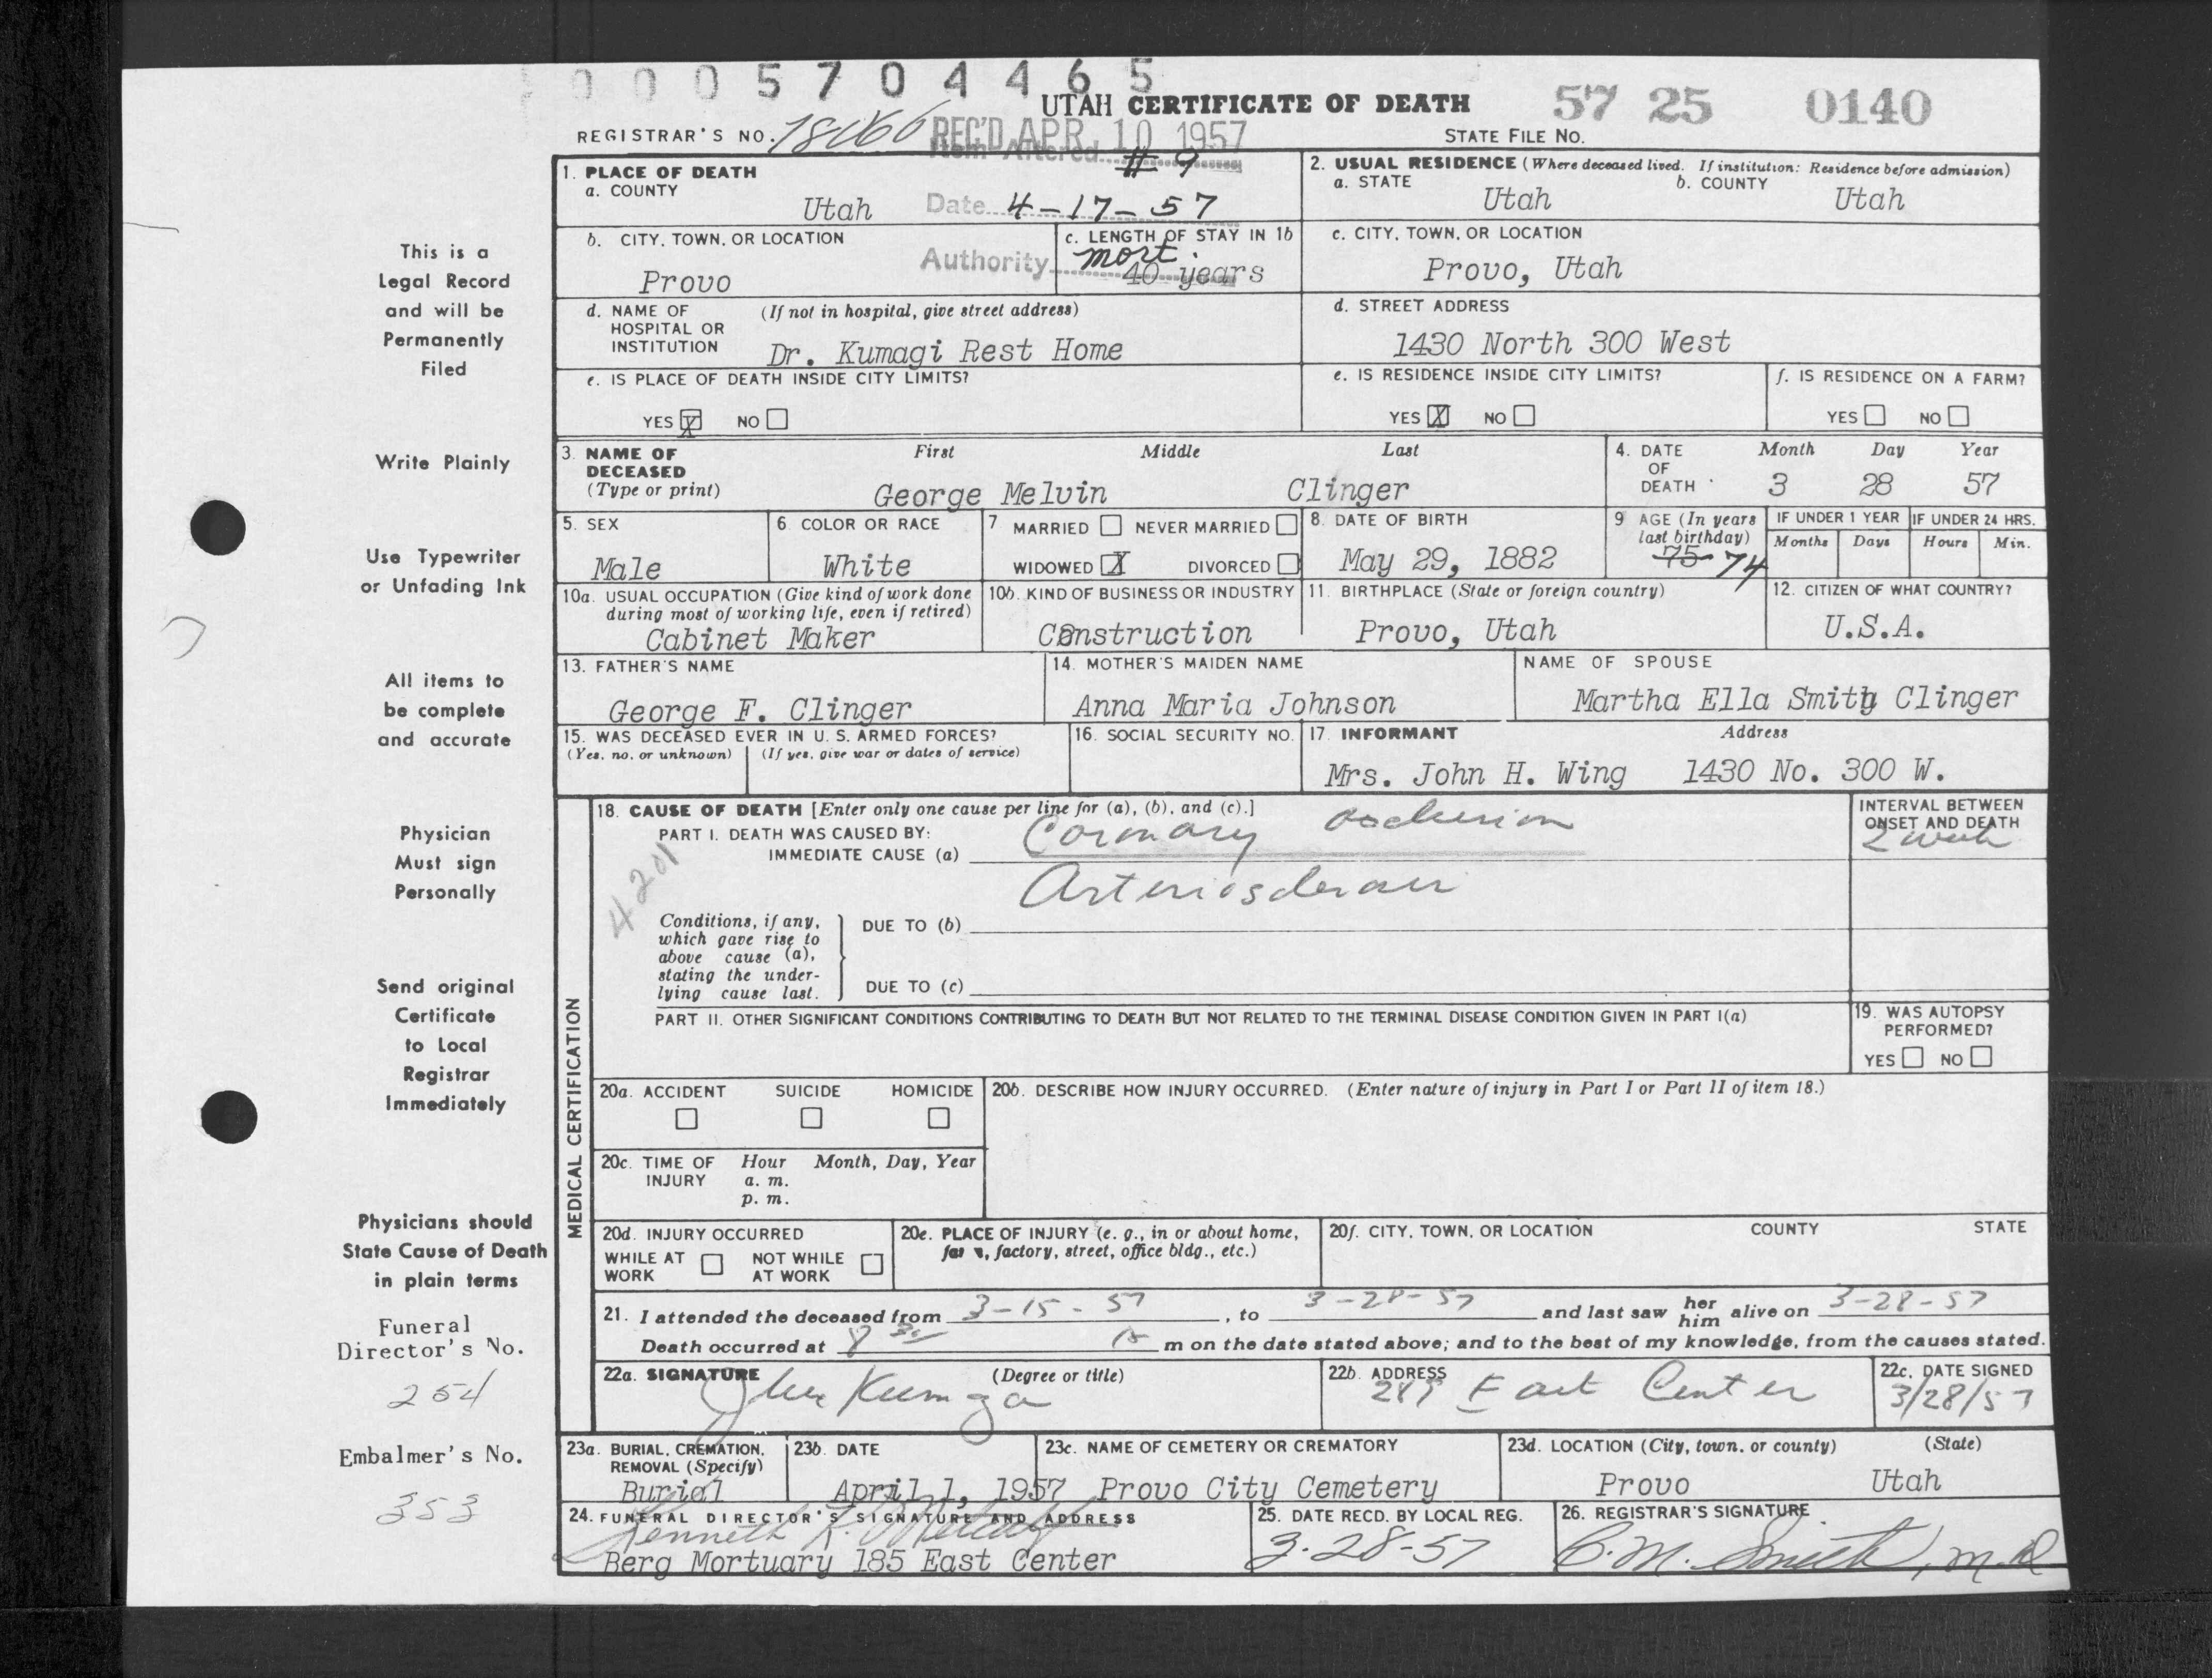 0005704465
UTAH CERTIFICATE OF DEATH
57 25 0140
REGISTRAR'S NO.
REC'D APR 10 1957
STATE FILE NO.
Item Altered #9
Date 4-17-57
Authority mort.
This is a
Legal Record
and will be
Permanently
Filed
Write Plainly
Use Typewriter
or Unfading Ink
All items to
be complete
and accurate
Physician
Must sign
Personally
Send original
Certificate
to Local
Registrar
Immediately
Physicians should
State Cause of Death
in plain terms
Funeral
Director's No.
254
Embalmer's No.
353
1. PLACE OF DEATH
a. COUNTY
Utah
2. USUAL RESIDENCE (Where deceased lived. If institution: Residence before admission)
a. STATE b. COUNTY
Utah Utah
b. CITY, TOWN, OR LOCATION
Provo
c. LENGTH OF STAY IN 1b
40 years
c. CITY, TOWN, OR LOCATION
Provo, Utah
d. NAME OF (If not in hospital, give street address)
HOSPITAL OR
INSTITUTION Dr. Kumagi Rest Home
d. STREET ADDRESS
1430 North 300 West
e. IS PLACE OF DEATH INSIDE CITY LIMITS?
YES X NO
e. IS RESIDENCE INSIDE CITY LIMITS?
YES X NO
f. IS RESIDENCE ON A FARM?
YES NO
3. NAME OF First Middle Last
DECEASED
(Type or print) George Melvin Clinger
4. DATE Month Day Year
OF
DEATH 3 28 57
5. SEX
Male
6. COLOR OR RACE
White
7 MARRIED NEVER MARRIED
WIDOWED X DIVORCED
8. DATE OF BIRTH
May 29, 1882
9 AGE (In years
last birthday)
75 74
IF UNDER 1 YEAR IF UNDER 24 HRS.
Months Days Hours Min.
10a. USUAL OCCUPATION (Give kind of work done
during most of working life, even if retired)
Cabinet Maker
10b. KIND OF BUSINESS OR INDUSTRY
Construction
11. BIRTHPLACE (State or foreign country)
Provo, Utah
12. CITIZEN OF WHAT COUNTRY?
U.S.A.
13. FATHER'S NAME
George F. Clinger
14. MOTHER'S MAIDEN NAME
Anna Maria Johnson
NAME OF SPOUSE
Martha Ella Smith Clinger
15. WAS DECEASED EVER IN U. S. ARMED FORCES?
(Yes, no, or unknown) (If yes, give war or dates of service)
16. SOCIAL SECURITY NO.
17. INFORMANT Address
Mrs. John H. Wing 1430 No. 300 W.
MEDICAL CERTIFICATION
18. CAUSE OF DEATH [Enter only one cause per line for (a), (b), and (c).]
PART I. DEATH WAS CAUSED BY:
IMMEDIATE CAUSE (a) Coronary occlusion
INTERVAL BETWEEN
ONSET AND DEATH
2 week
4201
Arteriosclerosis
Conditions, if any,
which gave rise to
above cause (a),
stating the under-
lying cause last.
DUE TO (b)
DUE TO (c)
PART II. OTHER SIGNIFICANT CONDITIONS CONTRIBUTING TO DEATH BUT NOT RELATED TO THE TERMINAL DISEASE CONDITION GIVEN IN PART I(a)
19. WAS AUTOPSY
PERFORMED?
YES NO
20a. ACCIDENT SUICIDE HOMICIDE
20b. DESCRIBE HOW INJURY OCCURRED. (Enter nature of injury in Part I or Part II of item 18.)
20c. TIME OF Hour Month, Day, Year
INJURY a. m.
p. m.
20d. INJURY OCCURRED
WHILE AT WORK NOT WHILE AT WORK
20e. PLACE OF INJURY (e. g., in or about home,
farm, factory, street, office bldg., etc.)
20f. CITY, TOWN, OR LOCATION COUNTY STATE
21. I attended the deceased from 3-15-57, to 3-28-57 and last saw her him alive on 3-28-57
Death occurred at 8 30 m on the date stated above; and to the best of my knowledge, from the causes stated.
22a. SIGNATURE (Degree or title)
22b. ADDRESS
East Center
22c. DATE SIGNED
3/28/57
23a. BURIAL, CREMATION,
REMOVAL (Specify)
Burial
23b. DATE
April 1, 1957
23c. NAME OF CEMETERY OR CREMATORY
Provo City Cemetery
23d. LOCATION (City, town, or county) (State)
Provo Utah
24. FUNERAL DIRECTOR'S SIGNATURE AND ADDRESS
Kenneth R. Metcalf
Berg Mortuary 185 East Center
25. DATE RECD. BY LOCAL REG.
3-28-57
26. REGISTRAR'S SIGNATURE
C.M. Smith, M.D